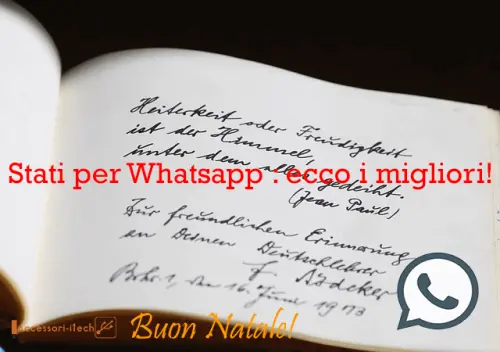 Heiterkeit oder Freudigkeit
ist der Himmel,
unter dem alles gedeiht.
Stati per Whatsapp : ecco i migliori!
(Jean Paul)
Zur freundlichen Erinnerung
an Deinen Deutschlehrer
F. Rödeker
den 16. Juni 19
Accessori-iTech
Buon Natale!